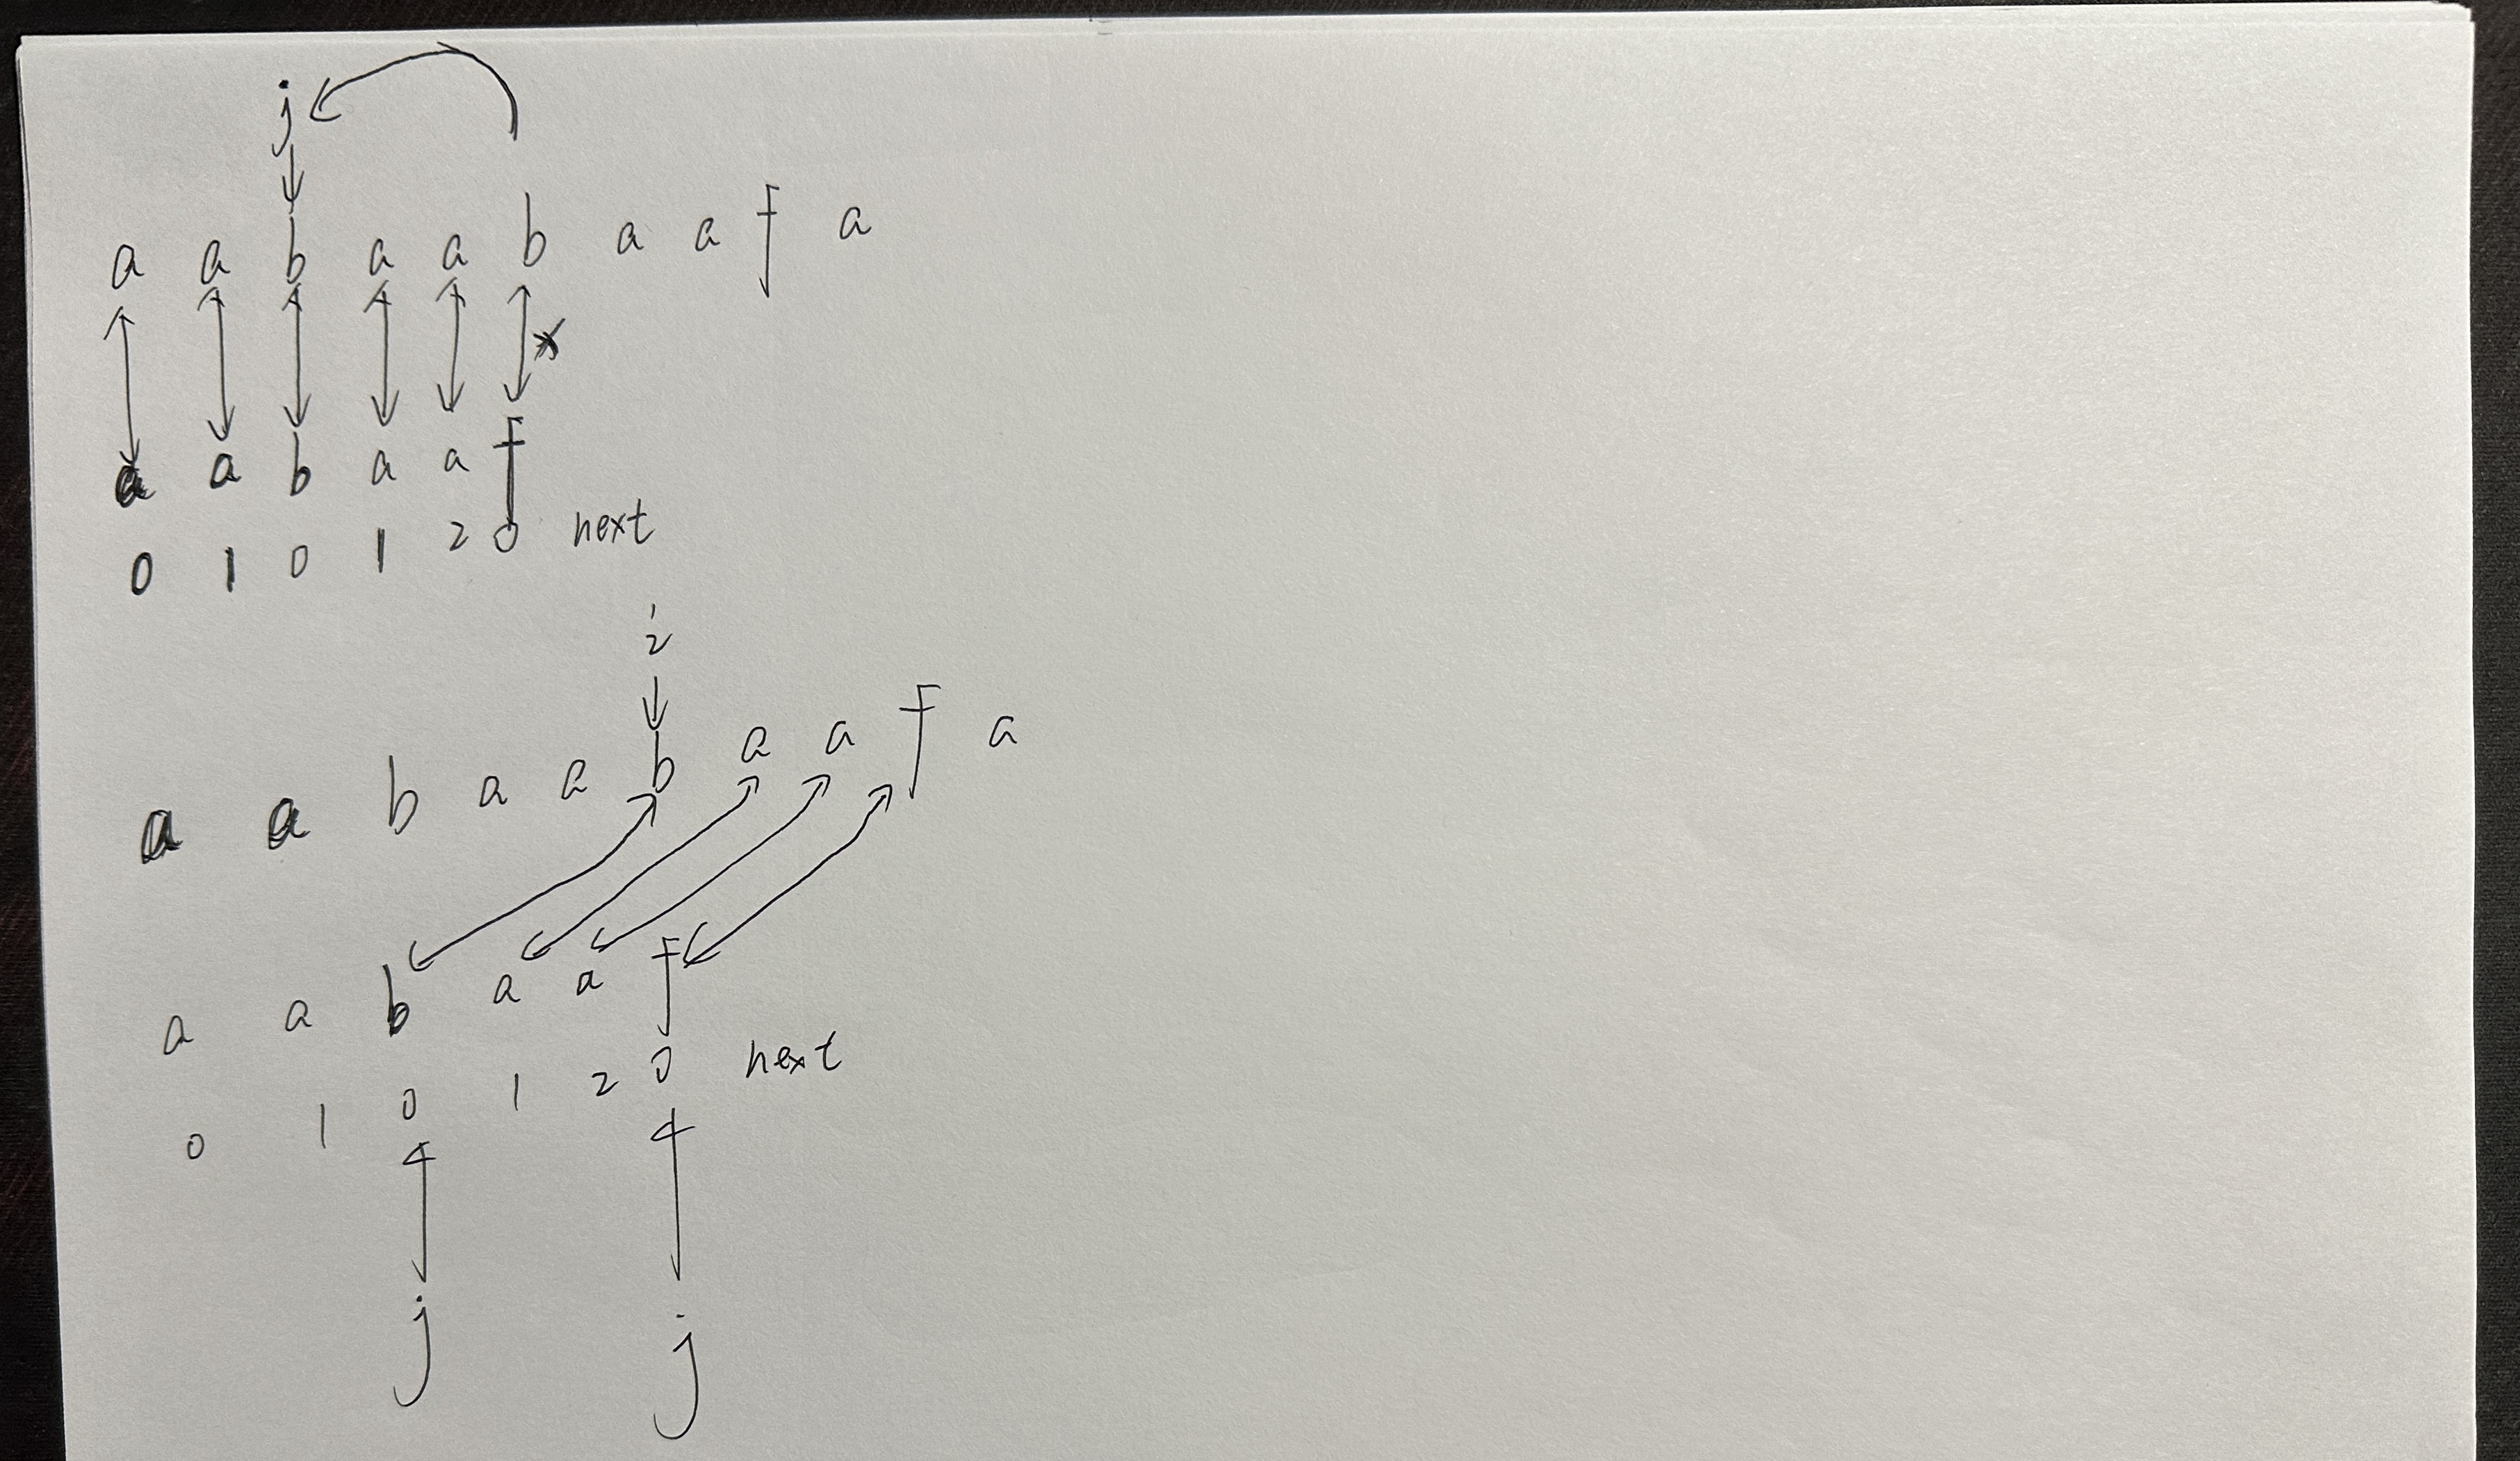 j
a a b a a b a a f a
a a b a a f
0 1 0 1 2 0 next
i
a a b a a b a a f a
a a b a a f
0 1 0 1 2 0 next
j j